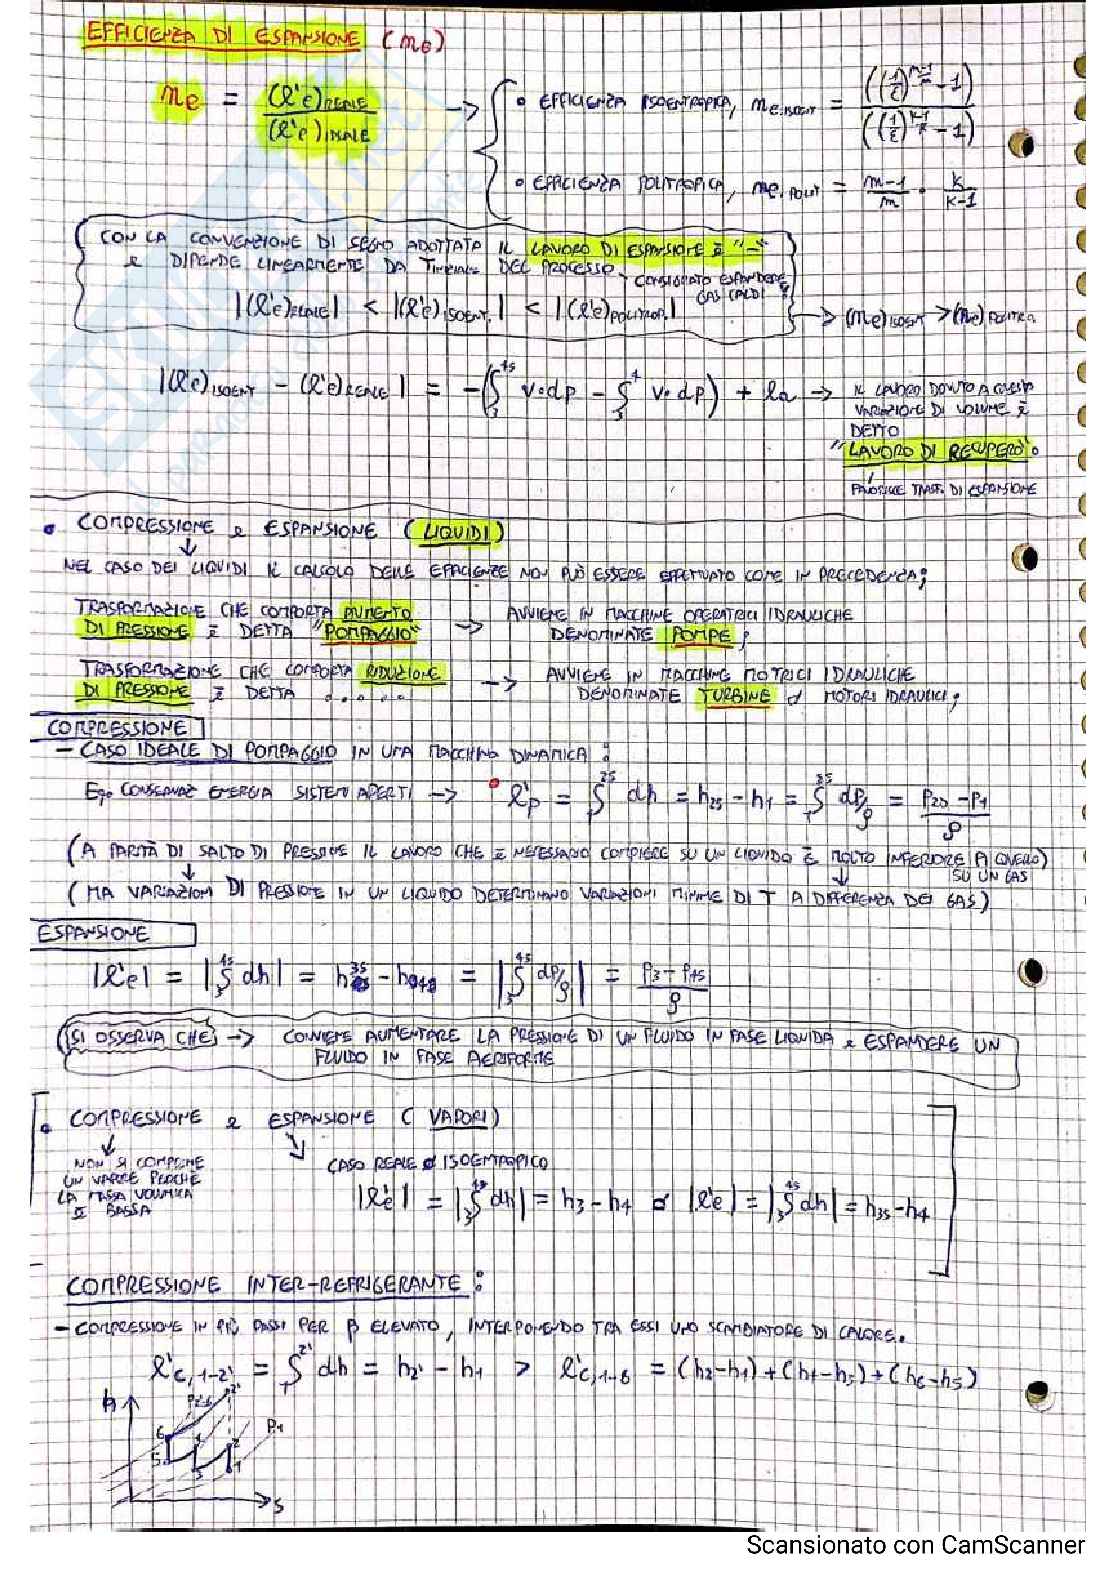 EFFICIENZA DI ESPANSIONE (ηe)
ηe = (l'e)REALE / (l'e)IDEALE → { • EFFICIENZA ISOENTROPICA, ηe,ISOENT = ((1/ε)^((m-1)/m) - 1) / ((1/ε)^((k-1)/k) - 1)
• EFFICIENZA POLITROPICA, ηe,POLIT = (m-1)/m · k/(k-1)
CON LA CONVENZIONE DI SEGNO ADOTTATA IL LAVORO DI ESPANSIONE È "-"
e DIPENDE LINEARMENTE DA TINIZIALE DEL PROCESSO → CONSIGLIATO ESPANDERE
GAS CALDI!
|(l'e)REALE| < |(l'e)ISOENT.| < |(l'e)POLITROP.| → (ηe)ISOENT > (ηe)POLITR.
|(l'e)ISOENT - (l'e)REALE| = -(∫₃^4s v·dp - ∫₃^4 v·dp) + la → IL LAVORO DOVUTO A QUESTA
VARIAZIONE DI VOLUME È
DETTO
"LAVORO DI RECUPERO".
FAVORISCE TRASF. DI ESPANSIONE
• COMPRESSIONE e ESPANSIONE (LIQUIDI)
NEL CASO DEI LIQUIDI IL CALCOLO DELLE EFFICIENZE NON PUÒ ESSERE EFFETTUATO COME IN PRECEDENZA;
TRASFORMAZIONE CHE COMPORTA AUMENTO → AVVIENE IN MACCHINE OPERATRICI IDRAULICHE
DI PRESSIONE È DETTA "POMPAGGIO" DENOMINATE POMPE;
TRASFORMAZIONE CHE COMPORTA RIDUZIONE → AVVIENE IN MACCHINE MOTRICI IDRAULICHE
DI PRESSIONE È DETTA .... DENOMINATE TURBINE o MOTORI IDRAULICI;
COMPRESSIONE
- CASO IDEALE DI POMPAGGIO IN UNA MACCHINA DINAMICA:
Eq. CONSERVAZ ENERGIA SISTEMI APERTI → l'p = ∫₁^2s dh = h2s - h1 = ∫₁^2s dp/ρ = (p2s - p1)/ρ
(A PARITÀ DI SALTO DI PRESSIONE IL LAVORO CHE È NECESSARIO COMPIERE SU UN LIQUIDO È MOLTO INFERIORE A QUELLO)
SU UN GAS
(MA VARIAZIONI DI PRESSIONE IN UN LIQUIDO DETERMINANO VARIAZIONI MINIME DI T A DIFFERENZA DEI GAS)
ESPANSIONE
|l'e| = |∫₃^4s dh| = h3s - h4s = |∫₃^4s dp/ρ| = (p3 - p4s)/ρ
SI OSSERVA CHE → CONVIENE AUMENTARE LA PRESSIONE DI UN FLUIDO IN FASE LIQUIDA e ESPANDERE UN
FLUIDO IN FASE AERIFORME
• COMPRESSIONE e ESPANSIONE (VAPORI)
NON SI COMPRIME
UN VAPORE PERCHÈ
LA MASSA VOLUMICA
È BASSA
CASO REALE o ISOENTROPICO
|l'e| = |∫₃^4s dh| = h3 - h4 o |l'e| = |∫₃^4s dh| = h3s - h4
COMPRESSIONE INTER-REFRIGERANTE:
- COMPRESSIONE IN PIÙ PASSI PER β ELEVATO, INTERPONENDO TRA ESSI UNO SCAMBIATORE DI CALORE.
l'c,1-2' = ∫₁^2' dh = h2' - h1 > l'c,1-6 = (h2-h1)+(h4-h3)+(h6-h5)
h
2'
P1
6
4
2
5
3
1
S
Scansionato con CamScanner